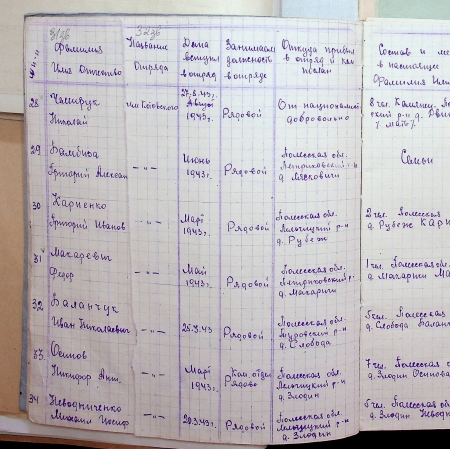 3136 3236
№ п.п
Фамилия
Имя Отчество
Название
Отряда
Дата
вступл
в отряд
Занимаем
должность
в отряде
Откуда прибыл
в отряд и кем
послан
Состав и ме
в настоящее
Фамилия Имя
28
Николай
им. Котовского
27.8.43г.
Август
1943г.
Рядовой
От националис
добровольно
8 чел.
ский р-н д.
"мать"
29
Бамбиза
Григорий Алексан
-"-
Июнь
1943г.
Рядовой
Полесская обл.
Петриковский р-н
д. Лясковичи
Семьи
30
Карпенко
Григорий Иванов
-"-
Март
1943г.
Рядовой
Полесская обл.
Лельчицкий р-н
д. Рубеж
2 чел. Полесская
д. Рубеж Карп
31
Макаревич
Федор
-"-
Май
1943г.
Рядовой
Полесская обл.
Петриковский р-н
д. Макаричи
1 чел. Полесская
д. Макаричи Ма
32
Баланчук
Иван Николаевич
-"-
25.3.43
Рядовой
Полесская обл.
Туровский р-н
д. Слобода
5 чел. Полесская
д. Слобода Балан
33
Осипов
Никифор Ант.
-"-
Март
1943г.
Ком. отдел
Рядово
Полесская обл.
Лельчицкий р-н
д. Злодин
7 чел. Полесская о
д. Злодин Осипова
34
Неводниченко
Михаил Иосиф
-"-
20.3.43г.
Рядовой
Полесская обл.
Лельчицкий р-н
д. Злодин
5 чел. Полесская об
д. Злодин Неводн